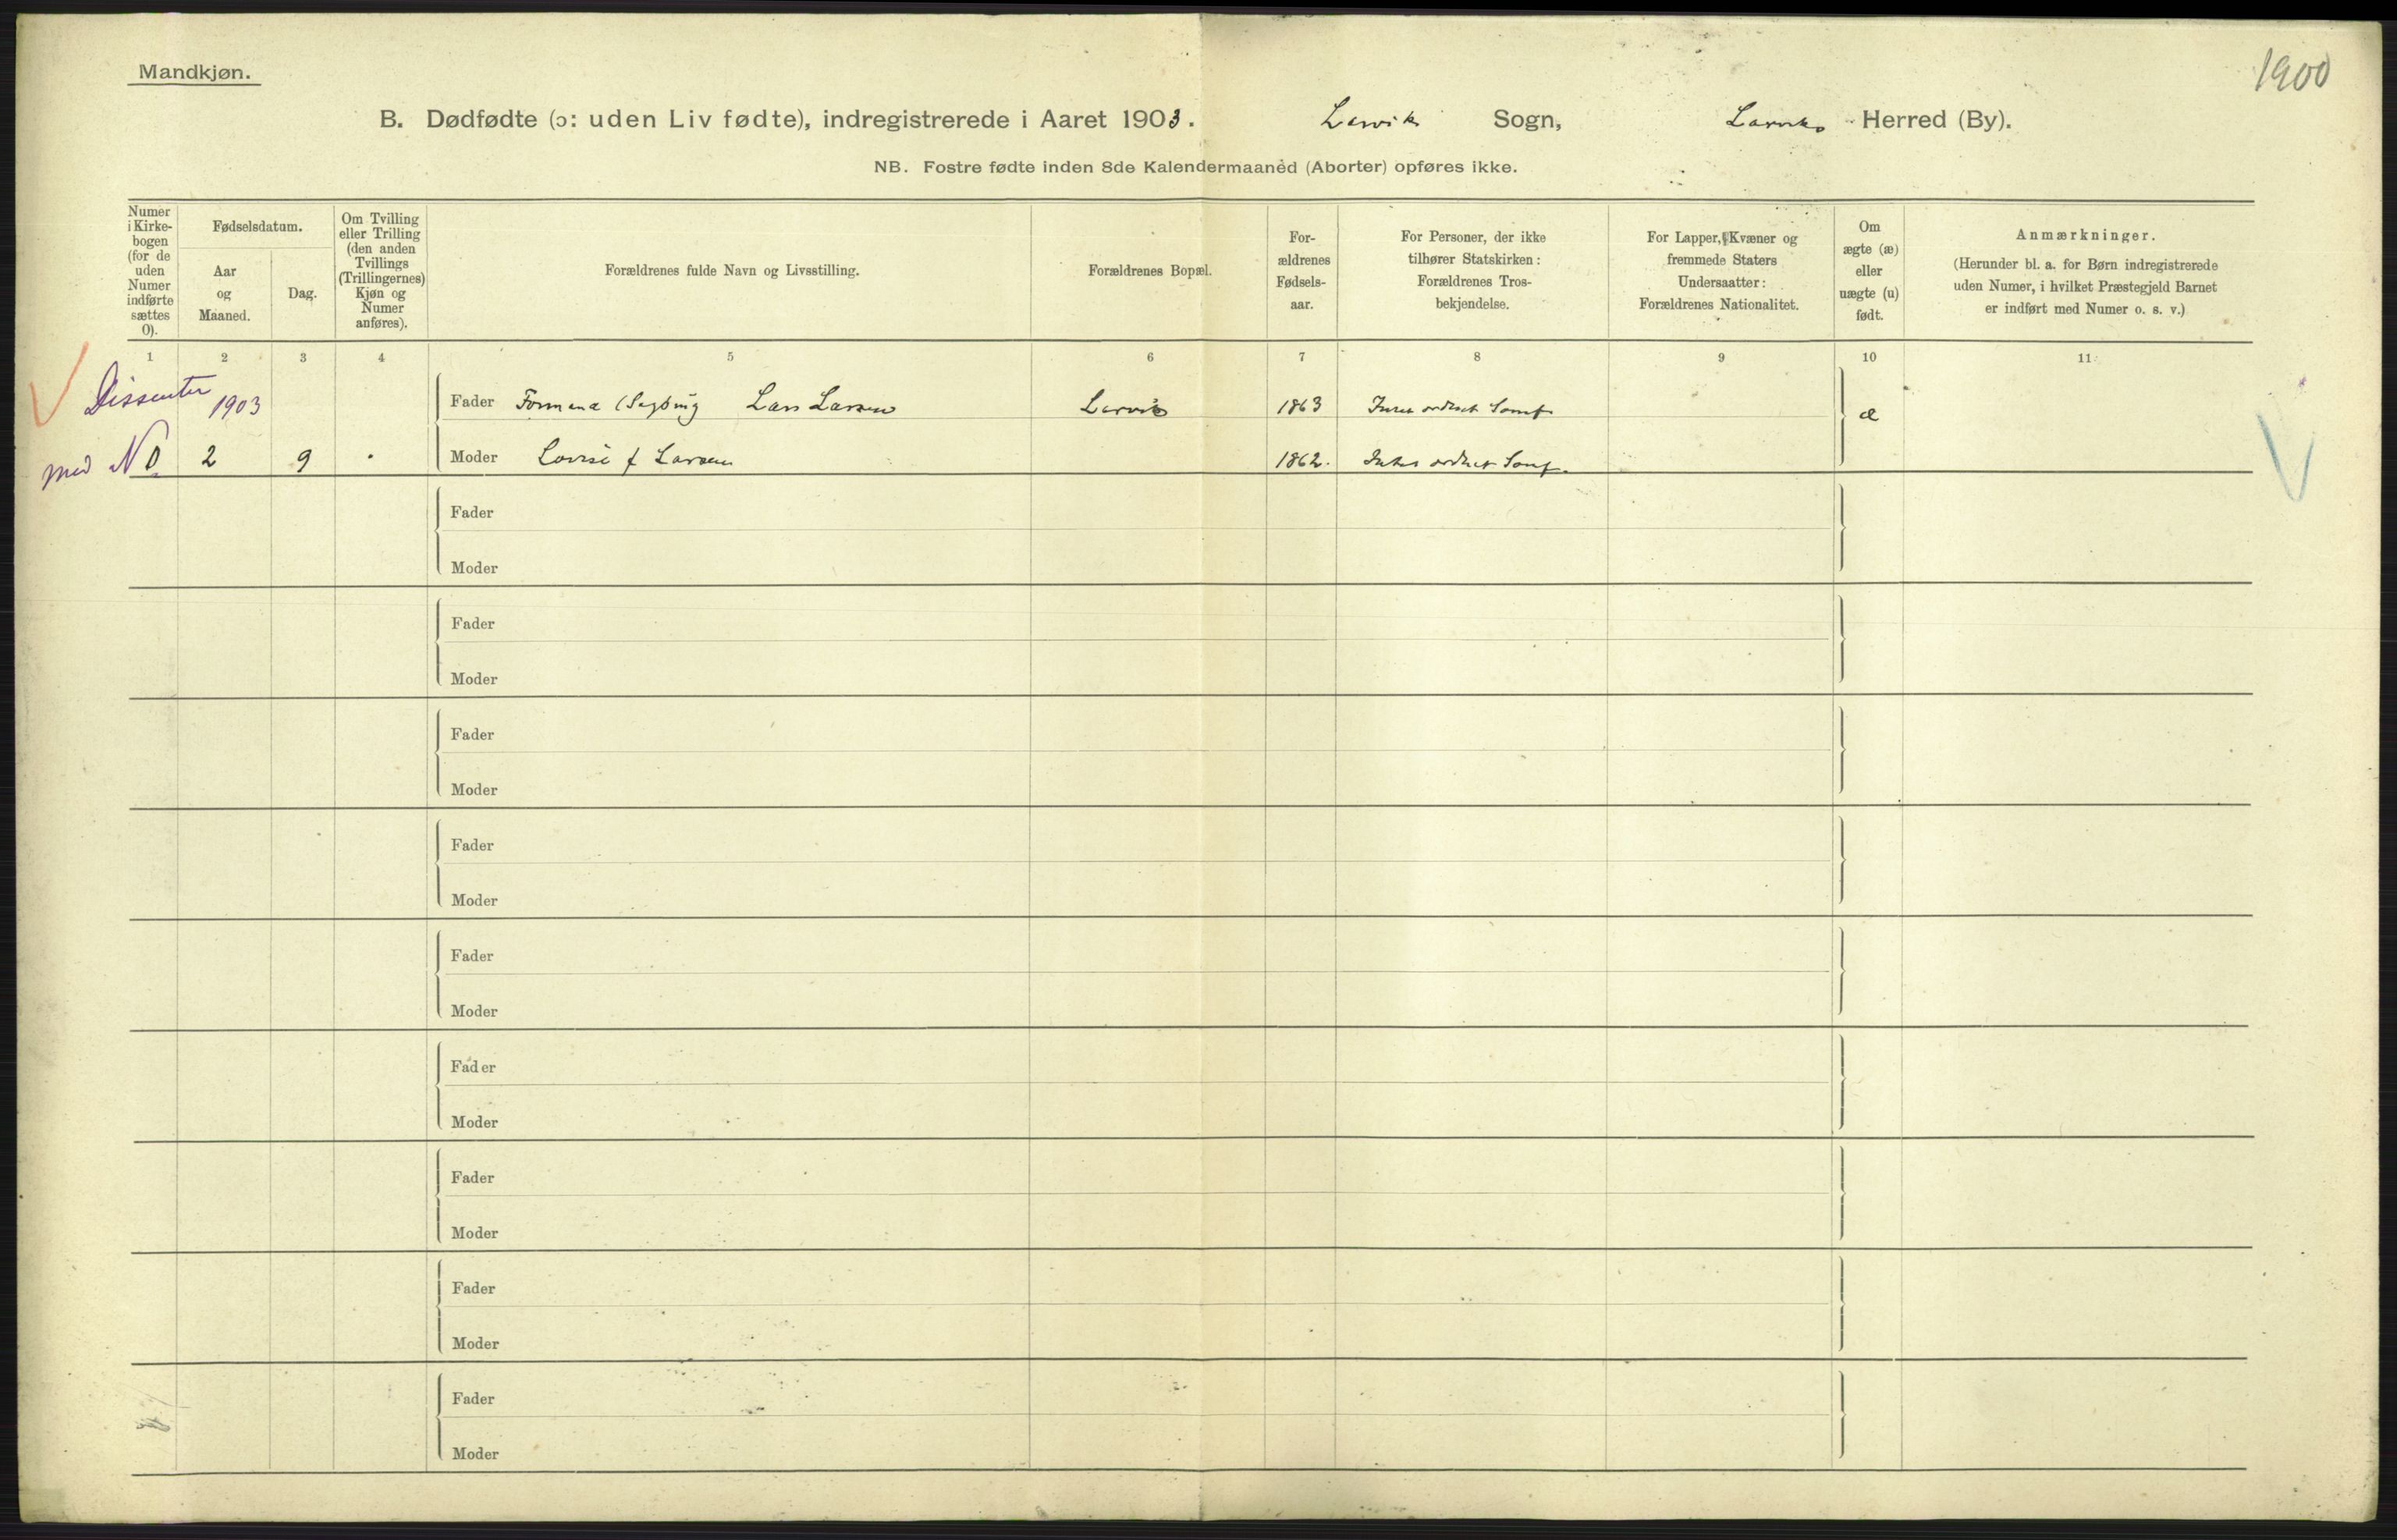 Mandkjøn.
1900
B. Dødfødte (ɔ: uden Liv fødte), indregistrerede i Aaret 1903. Larvik Sogn, Larviks Herred (By).
NB. Fostre fødte inden 8de Kalendermaaned (Aborter) opføres ikke.
Numer i Kirkebogen (for de uden Numer indførte sættes 0).
Fødselsdatum.
Aar og Maaned.
Dag.
Om Tvilling eller Trilling (den anden Tvillings (Trillingernes) Kjøn og Numer anføres).
Forældrenes fulde Navn og Livsstilling.
Forældrenes Bopæl.
Forældrenes Fødselsaar.
For Personer, der ikke tilhører Statskirken: Forældrenes Trosbekjendelse.
For Lapper, Kvæner og fremmede Staters Undersaatter: Forældrenes Nationalitet.
Om ægte (æ) eller uægte (u) født.
Anmærkninger.
(Herunder bl. a. for Børn indregistrerede uden Numer, i hvilket Præstegjeld Barnet er indført med Numer o. s. v.)
1 2 3 4 5 6 7 8 9 10 11
Dissenter 1903 Fader Formand Lars Larsen Larvik 1863 æ
med No 2 9 Moder Lovise f Larsen 1862.
Fader
Moder
Fader
Moder
Fader
Moder
Fader
Moder
Fader
Moder
Fader
Moder
Fader
Moder
Fader
Moder
Fader
Moder